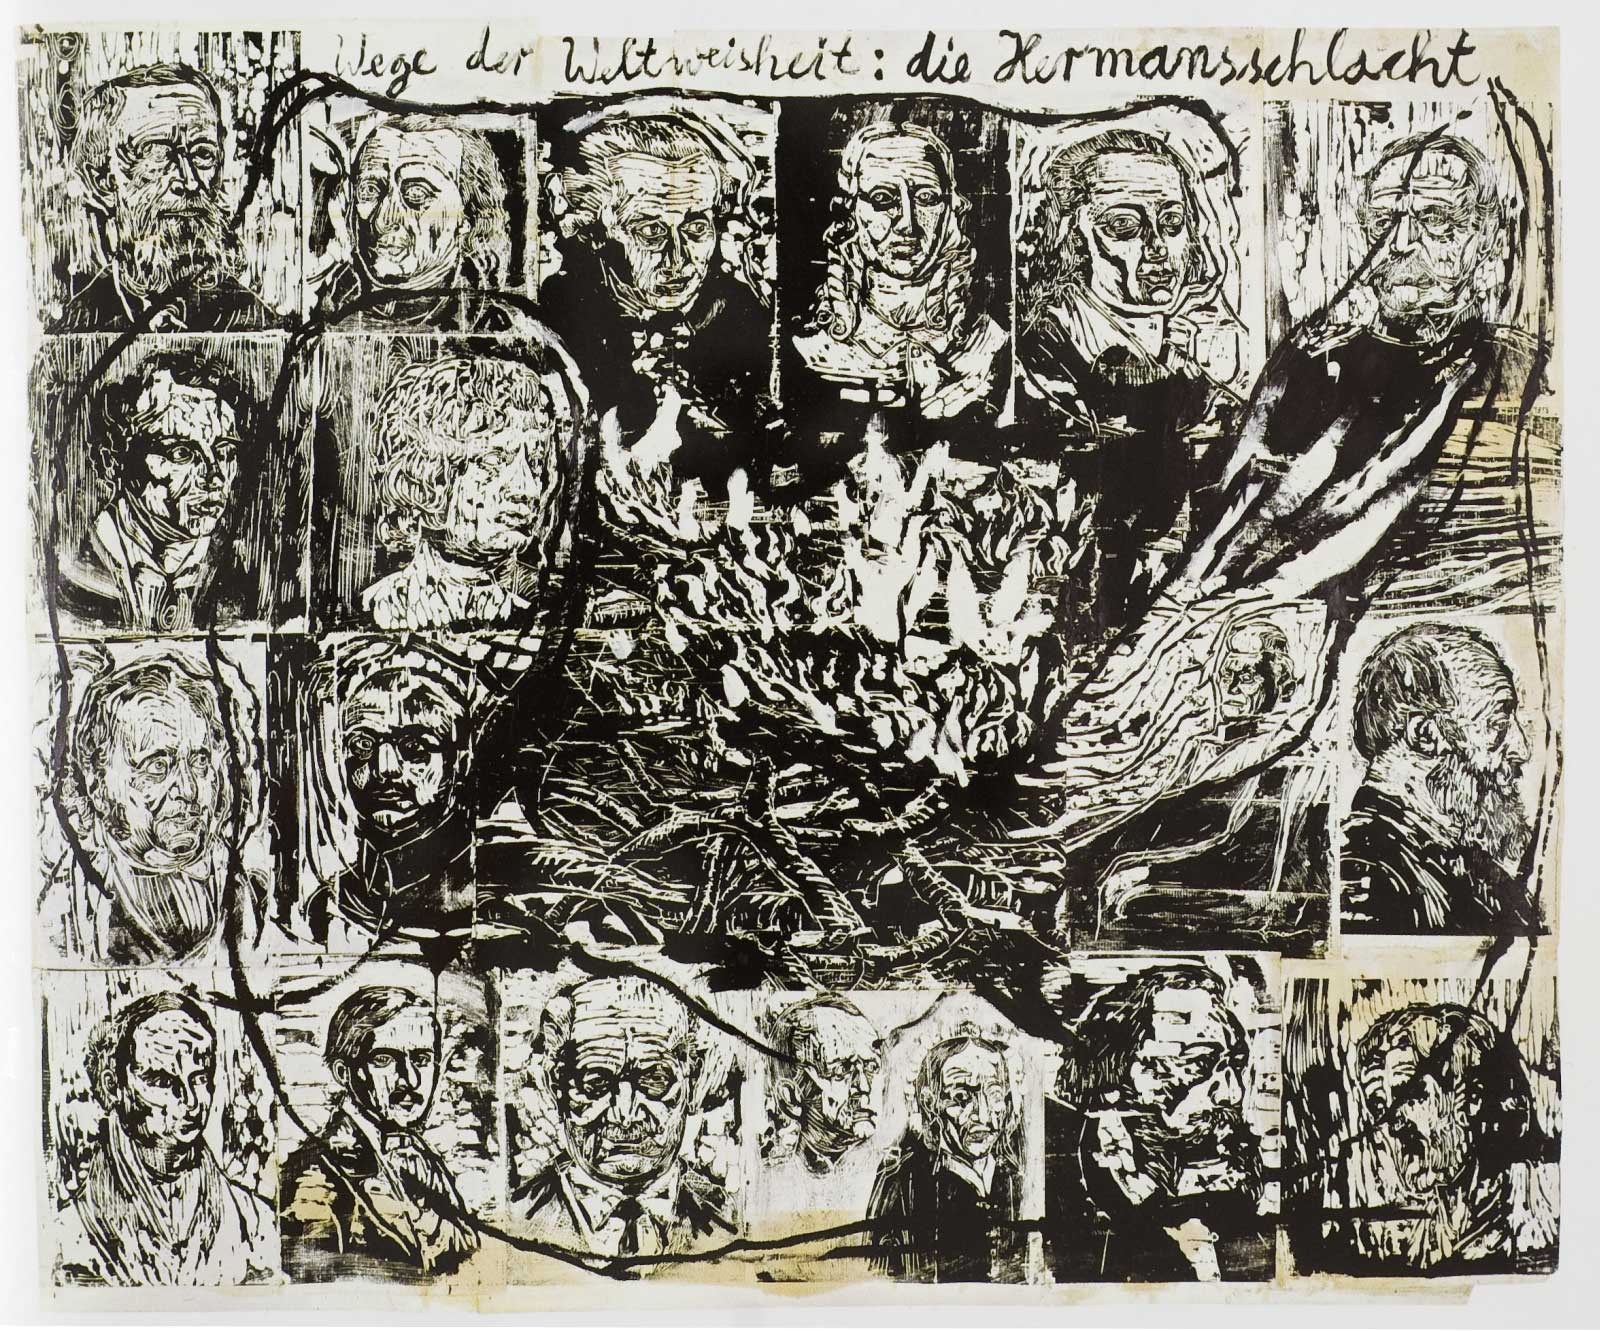 Wege der Weltweisheit: die Hermansschlacht